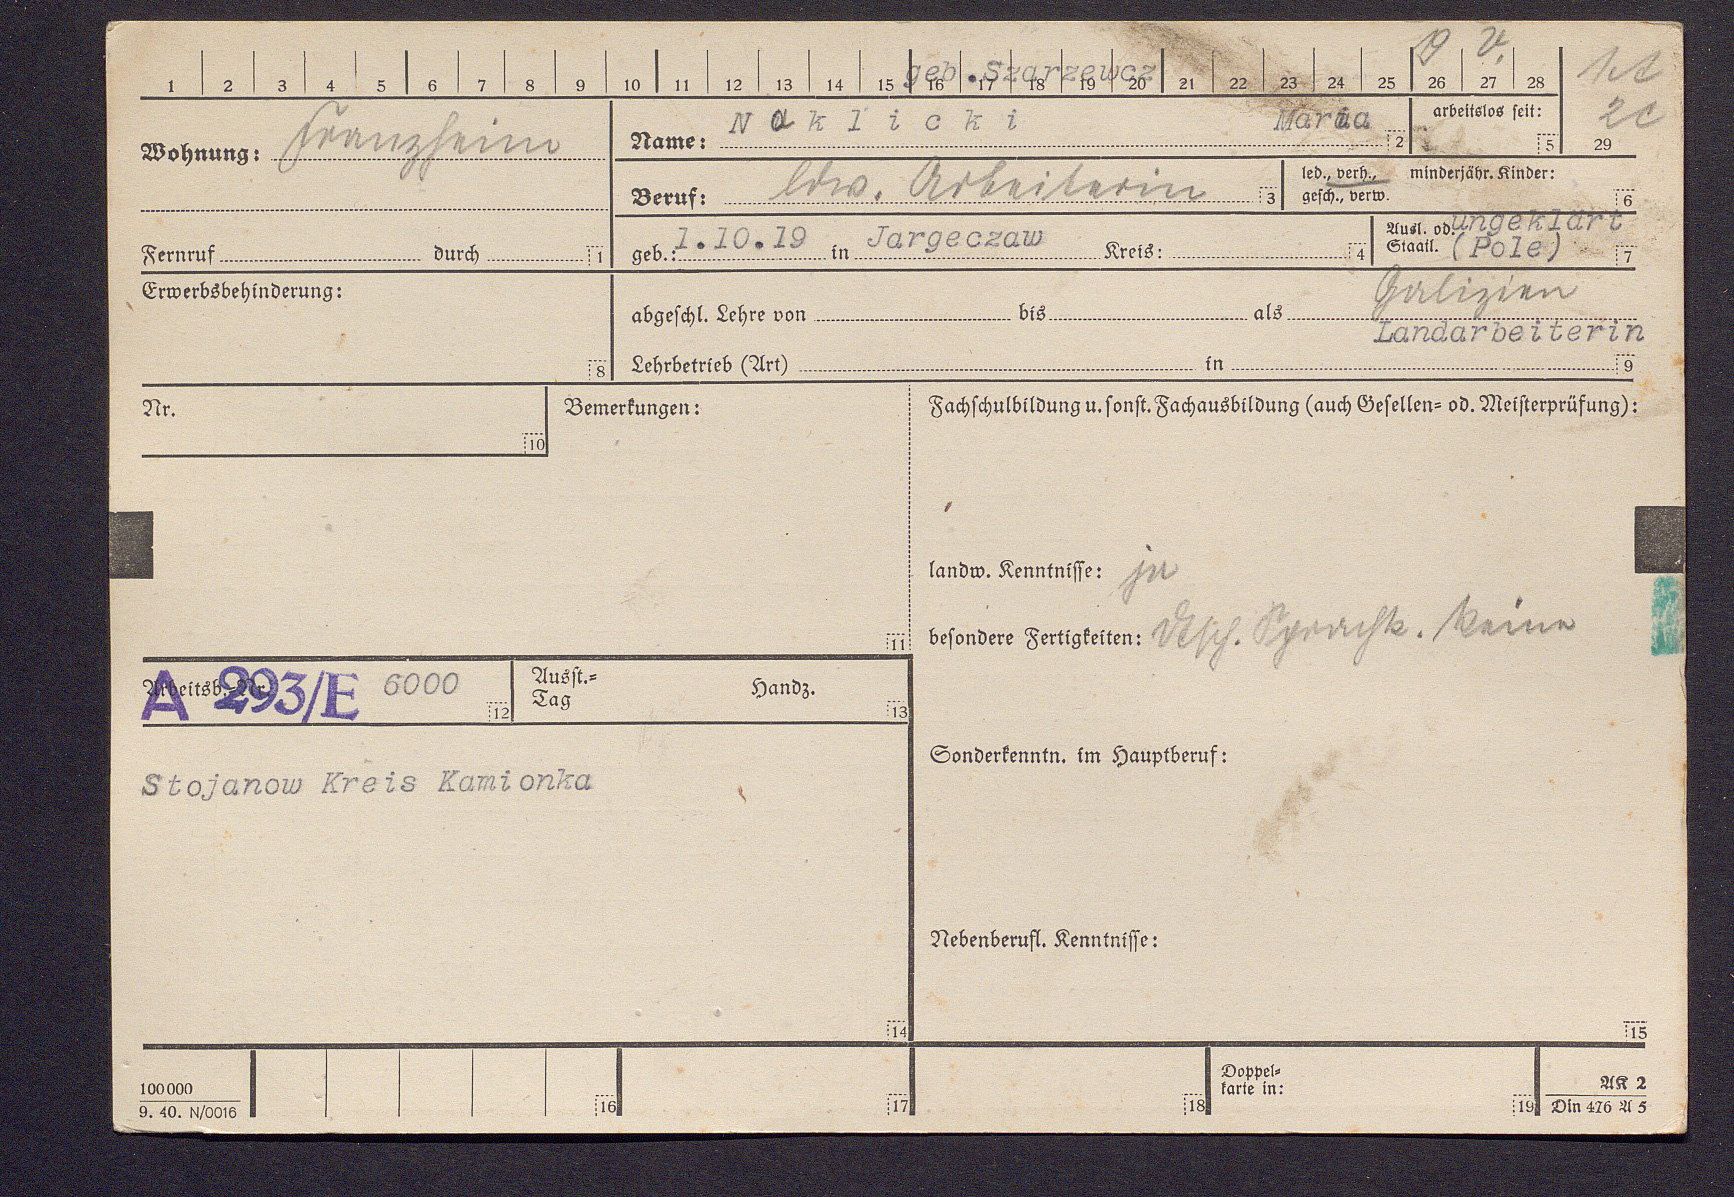 19 V.
1 2 3 4 5 6 7 8 9 10 11 12 13 14 15 16 17 18 19 20 21 22 23 24 25 26 27 28
geb. Szarzewcz
Wohnung: Franzheim
Name: Naklicki Maria 2
arbeitslos seit: 5
29
Beruf: ldw. Arbeiterin 3
led., verh., gesch., verw.
minderjähr. Kinder: 6
Fernruf durch 1
geb.: 1.10.19 in Jargeczaw Kreis: 4
Ausl. od. Staatl. ungeklärt (Pole) 7
Erwerbsbehinderung: 8
Galizien
abgeschl. Lehre von bis als
Landarbeiterin
Lehrbetrieb (Art) in 9
Nr. 10
Bemerkungen: 11
Fachschulbildung u. sonst. Fachausbildung (auch Gesellen- od. Meisterprüfung):
landw. Kenntnisse: ja
besondere Fertigkeiten: Dtsch. Sprachk. keine
Arbeitsb.-Nr. A 293/E 6000 12
Ausst.-Tag Handz. 13
Sonderkenntn. im Hauptberuf:
Stojanow Kreis Kamionka
Nebenberufl. Kenntnisse:
14
15
100000
9. 40. N/0016
16
17
18
Doppel-
karte in:
19
AK 2
Din 476 A 5